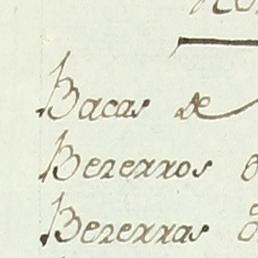 Bacas de
Bezerros
Bezerras